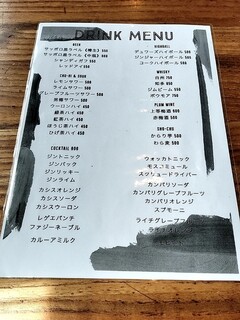 DRINK MENU
BEER
サッポロ黒ラベル《樽生》 500
サッポロ黒ラベル《中瓶》 600
シャンディガフ 550
レッドアイ 550
CHU-HI & SOUR
レモンサワー 500
ライムサワー 500
グレープフルーツサワー 500
男梅サワー 500
ウーロンハイ 450
緑茶ハイ 450
紅茶ハイ 450
ほうじ茶ハイ 450
ひげ茶ハイ 450
COCKTAIL 600
ジントニック
ジンバック
ジンリッキー
ジンライム
カシスオレンジ
カシスソーダ
カシスウーロン
レゲエパンチ
ファジーネーブル
カルーアミルク
HIGHBALL
デュワーズハイボール 500
ジンジャーハイボール 500
コークハイボール 500
WHISKY
白州
知多
ジムビーム
ボウモア 700
PLUM WINE
上等梅酒 600
赤梅酒 500
SHO-CHU
からり芋 500
わら麦 500
ウォッカトニック
モスコミュール
スクリュードライバー
カンパリソーダ
カンパリグレープフルーツ
カンパリオレンジ
スプモーニ
ライチグレープフルーツ